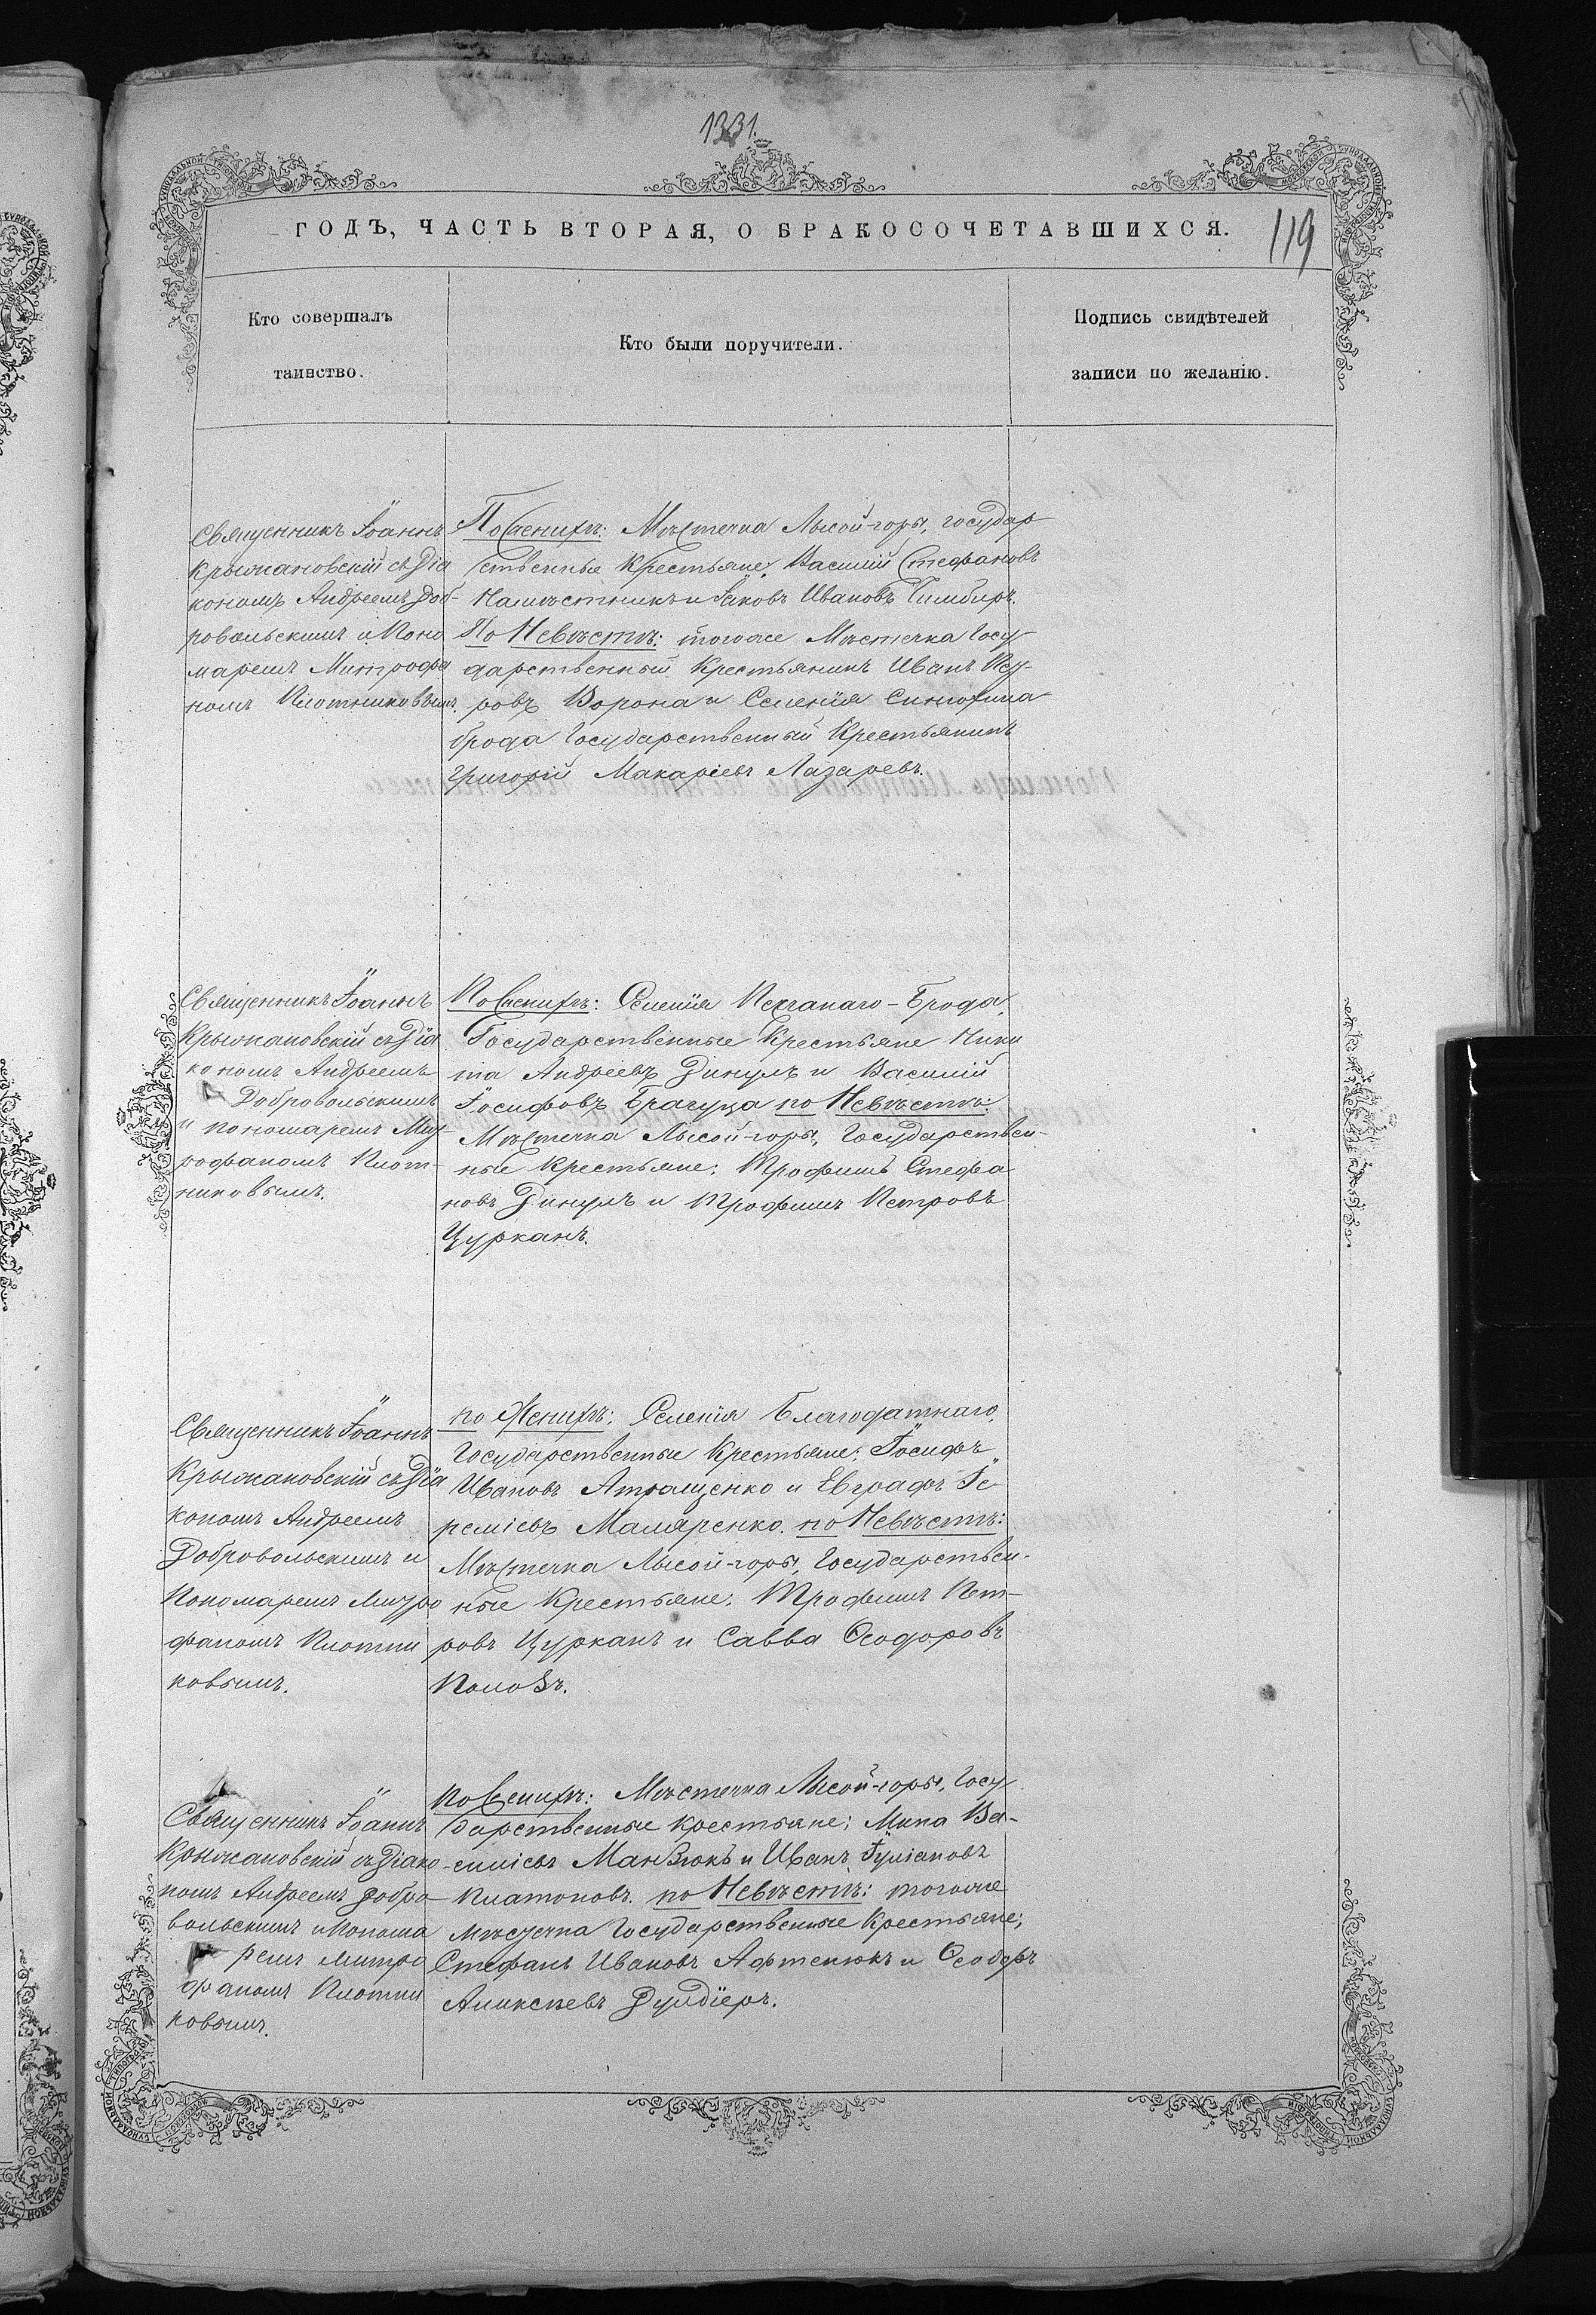 1331.
ГОДЪ, ЧАСТЬ ВТОРАЯ, О БРАКОСОЧЕТАВШИХСЯ.
119
Кто совершалъ
таинство.
Кто были поручители.
Подпись свидѣтелей
записи по желанію.
Священникъ Іоаннъ
Крыжановскій съ Діа
кономъ Андреемъ Доб-
ровольскимъ и Поно
маремъ Митрофа
номъ Плотниковымъ.
По Женихѣ: Мѣстечка Лысой-горы, государ
ственныя Крестьяне, Василій Стефановъ
Намѣстникъ и Іаковъ Ивановъ Чимбиръ.
По Невѣстѣ: тогоже Мѣстечка Госу
дарственный Крестьянинъ Иванъ
ровъ Ворона и Селенія Синюхина
брода Государственный Крестьянинъ
Григорій Макаріевъ Лазаревъ.
Священникъ Іоаннъ
Крыжановскій съ Діа
кономъ Андреемъ
Добровольскимъ
и пономаремъ Мит-
рофаномъ Плот-
никовымъ.
По Женихѣ: Селенія Песчанаго-Брода,
Государственные Крестьяне Ники
та Андреевъ Динулъ и Василій
Іосифовъ Брагуца по Невѣстѣ:
Мѣстечка Лысой-горы, Государствен-
ные Крестьяне: Трофимъ Стефа
новъ Динулъ и Трофимъ Петровъ
Цурканъ.
Священникъ Іоаннъ
Крыжановскій съ Діа
кономъ Андреемъ
Добровольскимъ и
Пономаремъ Митро
фаномъ Плотни
ковымъ.
по Женихѣ: Селенія Благодатнаго,
Государственные Крестьяне: Іосифъ
Ивановъ Атращенко и Евграфъ Іе
реміевъ Маляренко. по Невѣстѣ:
Мѣстечка Лысой-горы, Государствен-
ные Крестьяне: Трофимъ Пет-
ровъ Цурканъ и Савва Ѳеодоровъ
Полозъ.
Священникъ Іоаннъ
Крыжановскій съ Діако
номъ Андреемъ Добро
вольскимъ и Понома
ремъ Митро
фаномъ Плотни
ковымъ.
По Женихѣ: Мѣстечка Лысой-горы, Госу
дарственные крестьяне: Мина Ва-
силіевъ Манзюкъ и Иванъ Іуліановъ
Платоновъ. по Невѣстѣ: тогоже
мѣстечка Государственные Крестьяне;
Стефанъ Ивановъ Афтенюкъ и Ѳеодоръ
Аликсѣевъ Дулдіеръ.